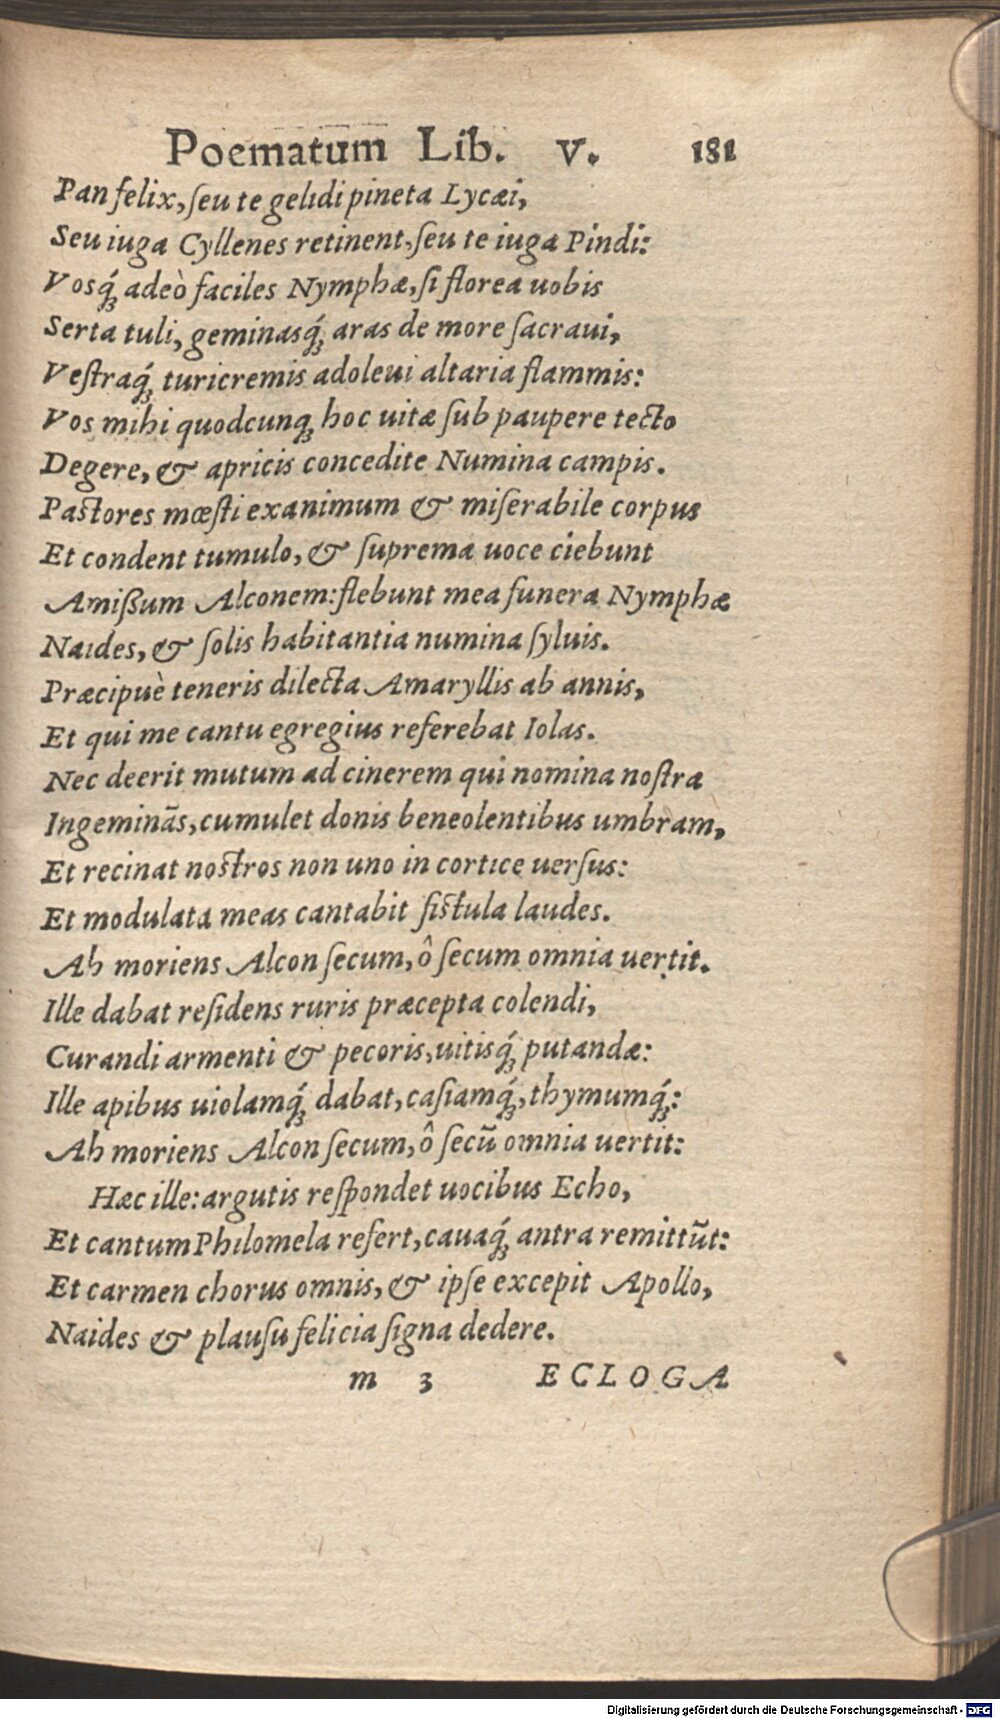 Poematum Lib. V. 181
Pan felix, ſeu te gelidi pineta Lycæi,
Seu iuga Cyllenes retinent, ſeu te iuga Pindi:
Vosq́; adeò faciles Nymphæ, ſi florea uobis
Serta tuli, geminasq́; aras de more ſacraui,
Veſtraq́; turicremis adoleui altaria flammis:
Vos mihi quodcunq; hoc uitæ ſub paupere tecto
Degere, & apricis concedite Numina campis.
Paſtores mœſti exanimum & miſerabile corpus
Et condent tumulo, & ſuprema uoce ciebunt
Amißum Alconem: flebunt mea funera Nymphæ
Naides, & ſolis habitantia numina ſyluis.
Præcipuè teneris dilecta Amaryllis ab annis,
Et qui me cantu egregius referebat Iolas.
Nec deerit mutum ad cinerem qui nomina noſtra
Ingeminãs, cumulet donis beneolentibus umbram,
Et recinat noſtros non uno in cortice uerſus:
Et modulata meas cantabit fiſtula laudes.
Ah moriens Alcon ſecum, ô ſecum omnia uertit.
Ille dabat reſidens ruris præcepta colendi,
Curandi armenti & pecoris, uitisq́; putandæ:
Ille apibus uiolamq́; dabat, caſiamq́;, thymumq́;:
Ah moriens Alcon ſecum, ô ſecũ omnia uertit:
Hæc ille: argutis reſpondet uocibus Echo,
Et cantum Philomela refert, cauaq́; antra remittũt:
Et carmen chorus omnis, & ipſe excepit Apollo,
Naides & plauſu felicia ſigna dedere.
m 3 ECLOGA
Digitalisierung gefördert durch die Deutsche Forschungsgemeinschaft - DFG